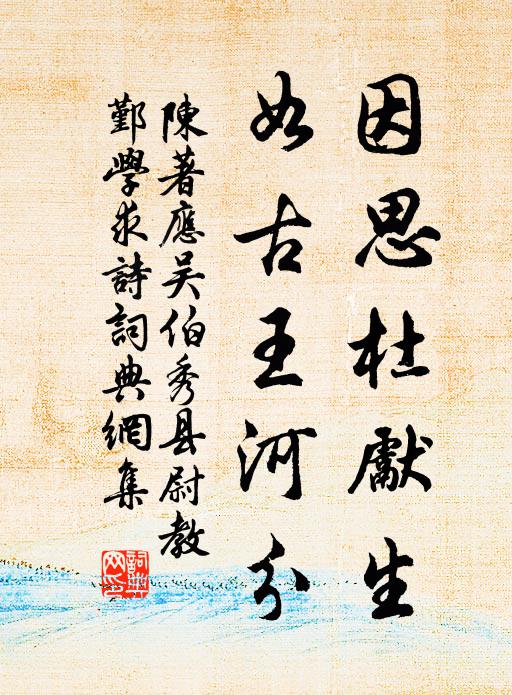 因思杜獻生
如古王河分
陳著應吴伯秀县尉教
鄞學求詩詞典網集
詞典网印